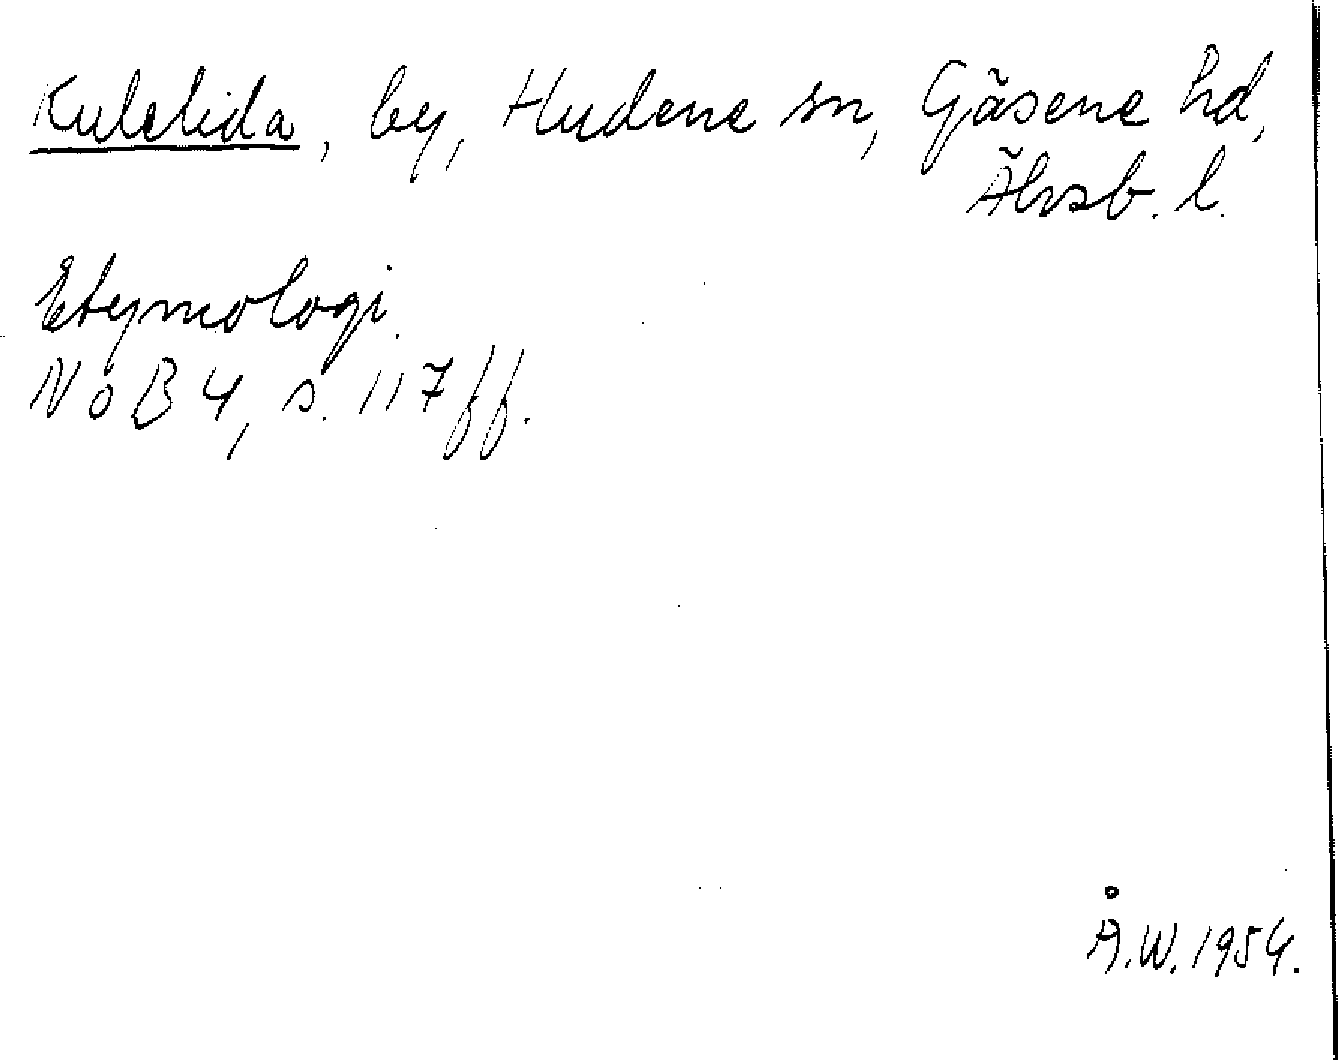 Kulelida, by, Hudene sn, Gäsene hd,
Älvsb. l.
Etymologi.
NoB 4, s. 117 ff.
Å.W. 1954.